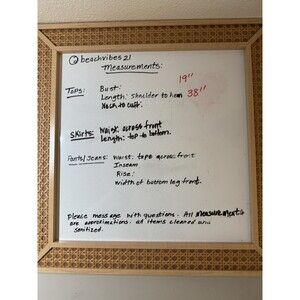 @beachvibes21
Measurements:
Tops: Bust: 19"
Length: Shoulder to hem 38"
Neck to cuff.
Skirts: Waist: across front
Length: top to bottom.
Pants/Jeans: Waist: taps across front
Inseam
Rise:
width of bottom leg front.
Please message with questions. All measurements
are approximations. all items cleaned and
sanitized.